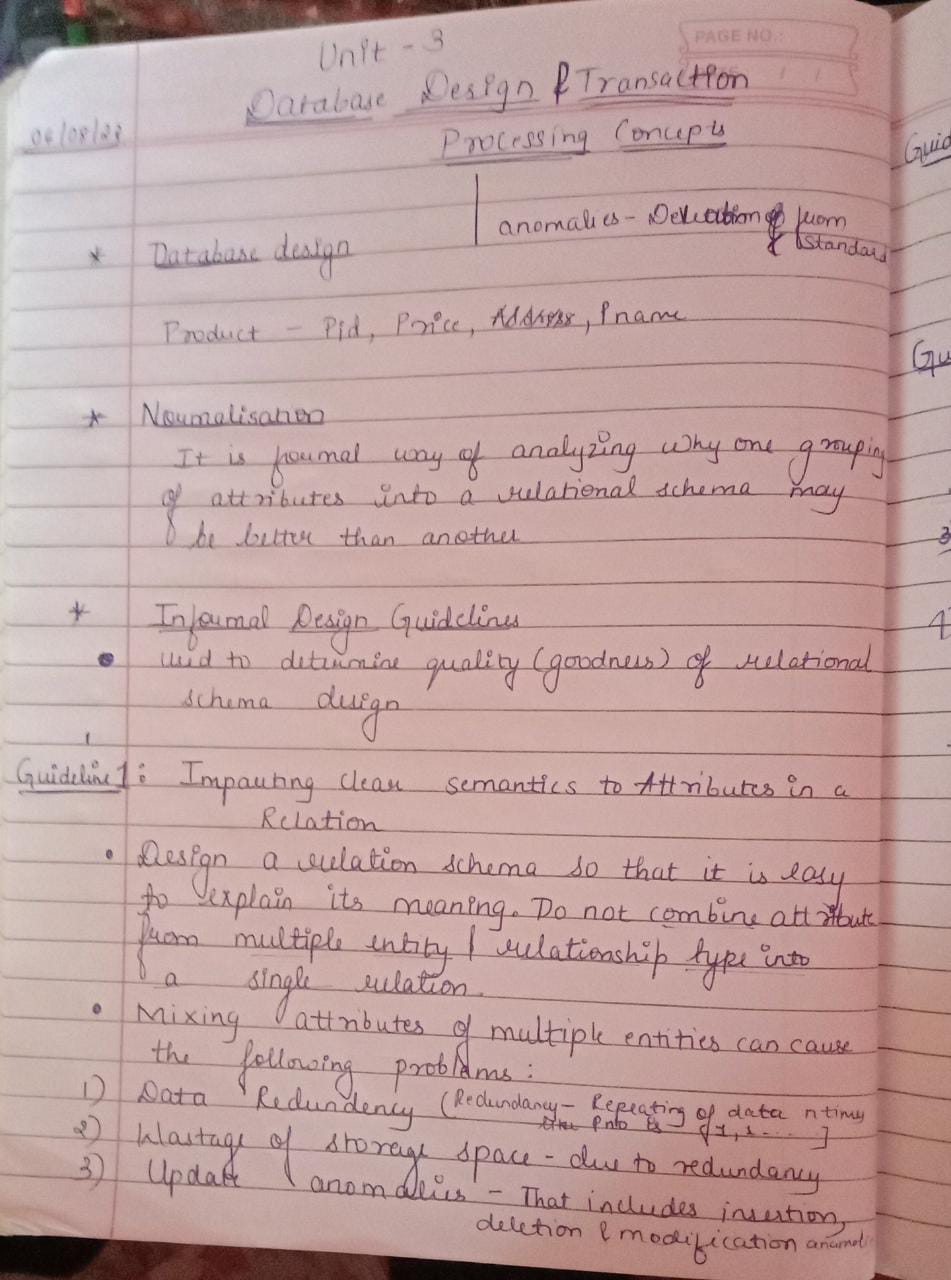 PAGE NO.:
Unit - 3
Database Design & Transaction
Processing Concepts
anomalies - Deviation from
standard
* Database design
Product - Pid, Price, Address, Pname
* Normalisation
It is formal way of analyzing why one grouping
of attributes into a relational schema may
be better than another
* Informal Design Guidelines
• Used to determine quality (goodness) of relational
schema design
Guideline 1: Imparting clear semantics to Attributes in a
Relation
• Design a relation schema so that it is easy
to explain its meaning. Do not combine attribute
from multiple entity / relationship type into
a single relation.
• Mixing attributes of multiple entities can cause
the following problems:
1) Data Redundency (Redundancy - Repeating of data n times
2) Wastage of storage space - due to redundancy
3) Update anomalies - That includes insertion,
deletion & modification
Guid
Gu
3
4